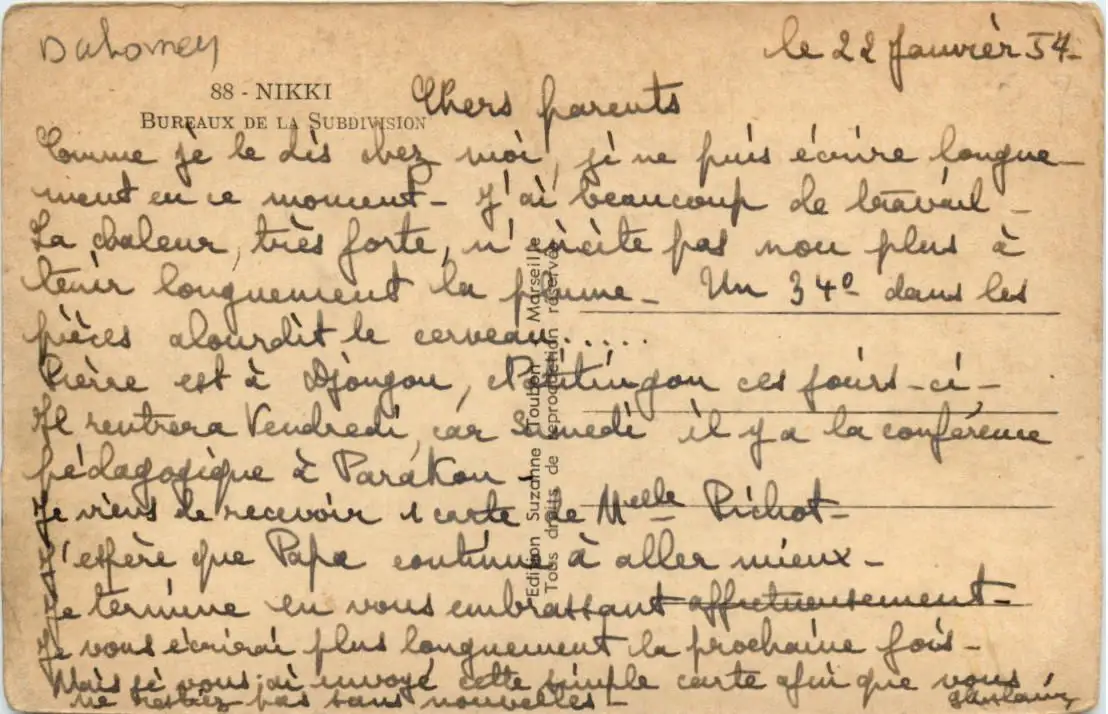 Dahomey
le 22 Janvier 54-
88 - NIKKI
BUREAUX DE LA SUBDIVISION
Chers parents
Comme je le dis chez moi, je ne puis écrire longue-
ment en ce moment - J'ai beaucoup de travail -
La chaleur, très forte, n'incite pas non plus à
tenir longuement la plume - Un 34° dans les
pièces alourdit le cerveau.....
Pierre est à Djougou, et ces jours-ci -
Il rentrera Vendredi, car Samedi il y a la conférence
pédagogique à Parakou -
Je viens de recevoir 1 carte de Melle Pichot -
J'espère que Papa continue à aller mieux -
Je termine en vous embrassant affectueusement -
Je vous écrirai plus longuement la prochaine fois -
Mais je vous ai envoyé cette simple carte afin que vous
ne restiez pas sans nouvelles -
Ghislaine
Edition Suzanne Toubon Marseille
Tous droits de reproduction réservés